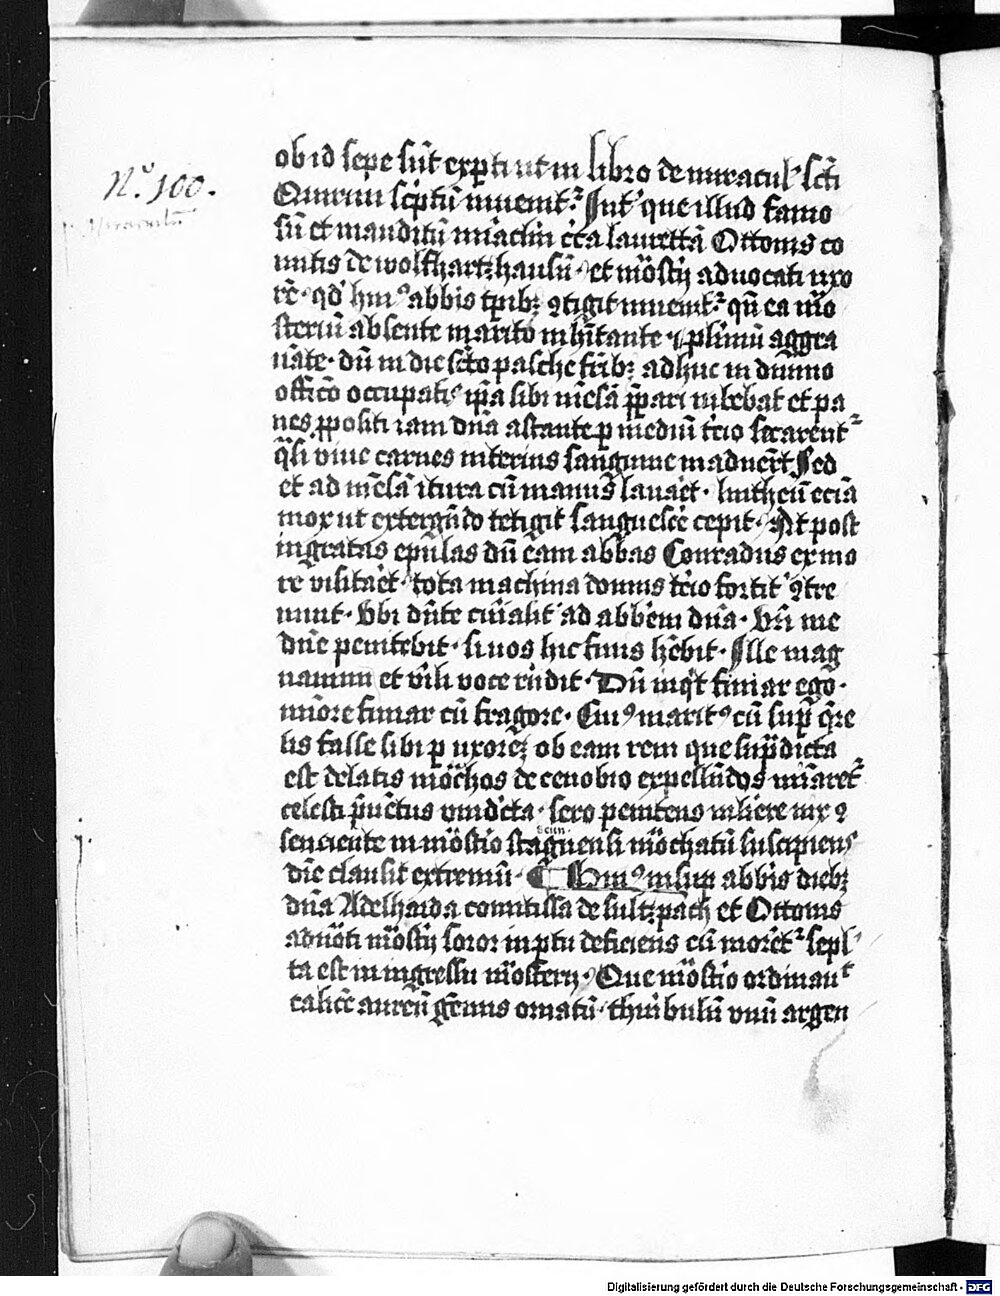 N.º 100.
Miraculū
ob id sepe sūt exp̄ti ut in libro de miracul' sc̄ti
Quirini sc̄ptū inuenit᷑ Int' que illud famo
sū et mauditū mīaclm̄ c̄ca laurettā Ottonis co
mitis de wolfhartzhausn̄ · et mōst̄ij aduocati uxo
rē · qd' hui⁹ abbīs tp̄ibꝫ ꝯtigit inuenit᷑ qn̄ ea mō
steriū absente marito inhītante · ꝛ plīmū aggra
uāte · dū in die sc̄to pasche fr̄ibꝫ adhuc in diuino
officō occupatis ip̄a sibi mēsā p̄pari iubebat et pa
nes p̄positi iam dn̄a astante ꝑ mediū tēio secarent᷑
q̄si viue carnes interius sanguine maduert̄ Sed
et ad mēsā itura cū manus lauaēt · lintheū eciā
mox ut extergēdo tetigit sanguesc̄e cepit · At post
ingratas epulas dū eam abbas Conradus ex mo
re visitaēt · tota machina domus tēio fortit' ꝯtre
muit · Vbi dn̄te ciuialit' ad abbēm dn̄a · Vn̄ me
dn̄e penitebit · si uos hic finis hēbit · Ille mag
nanim et vīli uoce rn̄dit · Dū inq̄t finiar ego ·
mīore finiar cū fragore · Cui⁹ marit⁹ cū sup̄ q̄re
lis falsse sibi ꝑ uxoreꝫ ob eam rem que sup̄dicta
est delatis mōchos de cenobio expellēdos mīaret᷑
celesti p̄uētus vindc̄ta · sero penitens mliere uix ꝯ
senciente in mōst̄io staguensi mōchatū suscipiens
diē clausit extremū · Hui⁹ insup abbīs diebꝫ
dn̄a Adelhaida comitissa de sultzpach et Ottonis
aduōti mōst̄ij soror in p̄tu deficiens cū moret᷑ sepl'
ta est in ingressu mōsterij · Que mōst̄io ordinau't
calicē aureū gēmis ornatū · thuribulū vnū argen
Digitalisierung gefördert durch die Deutsche Forschungsgemeinschaft - DFG